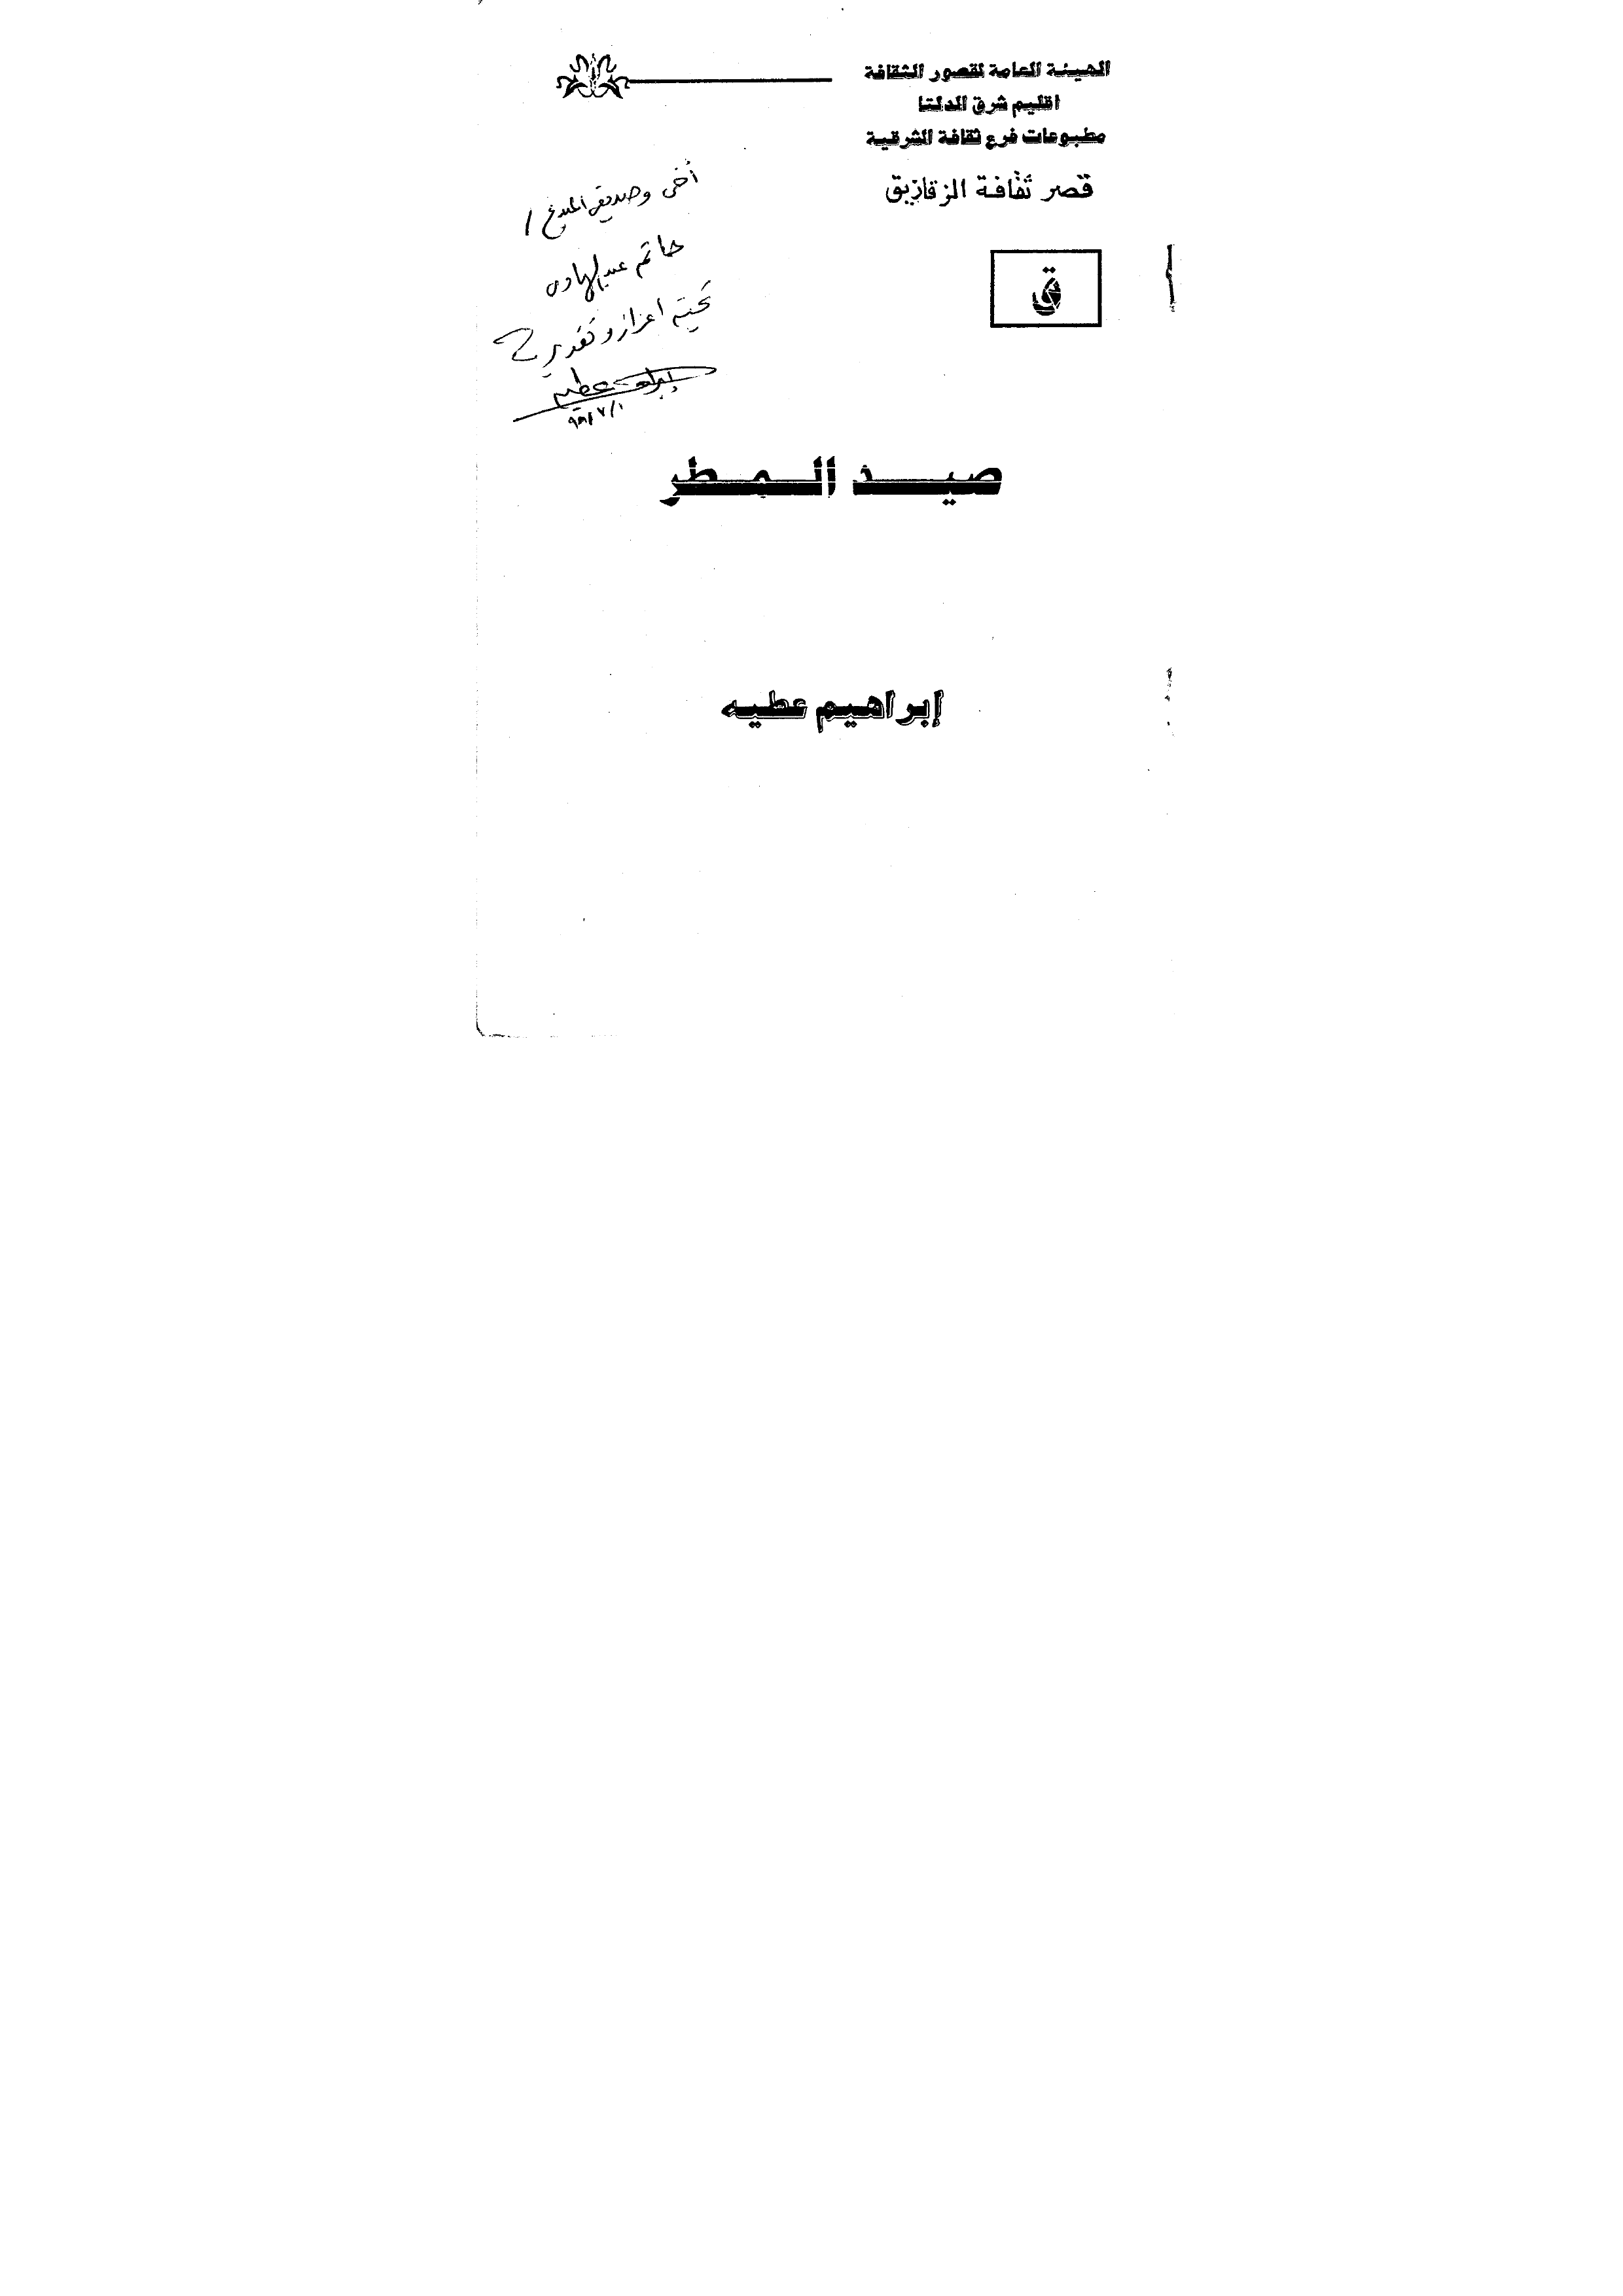 الهيئة العامة لقصور الثقافة
اقليم شرق الدلتا
مطبوعات فرع ثقافة الشرقية
قصر ثقافة الزقازيق
أخى وصديقى المبدع /
حاتم عبدالهادى
تحية اعزاز وتقدير
إبراهيم عطيه
ق
صيد المطر
إبراهيم عطيه